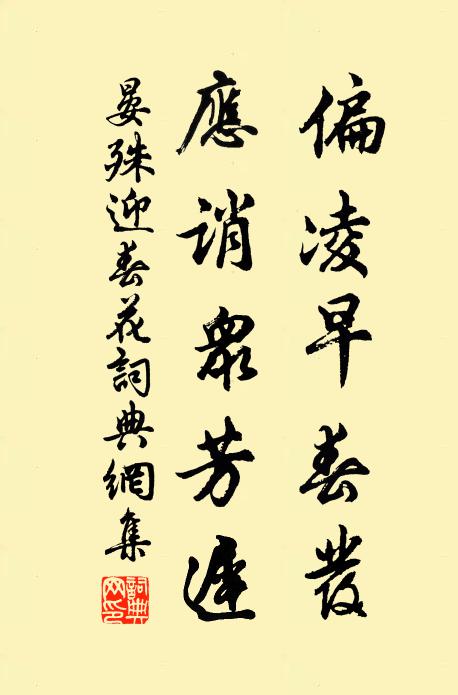 偏凌早春發
應誚眾芳遲
晏殊迎春花詞典網集
詞典網印